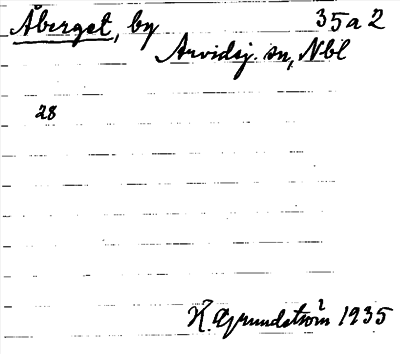 Åberget, by 35a2
Arvidsj. sn, Nbl
28
K. Grundström 1935